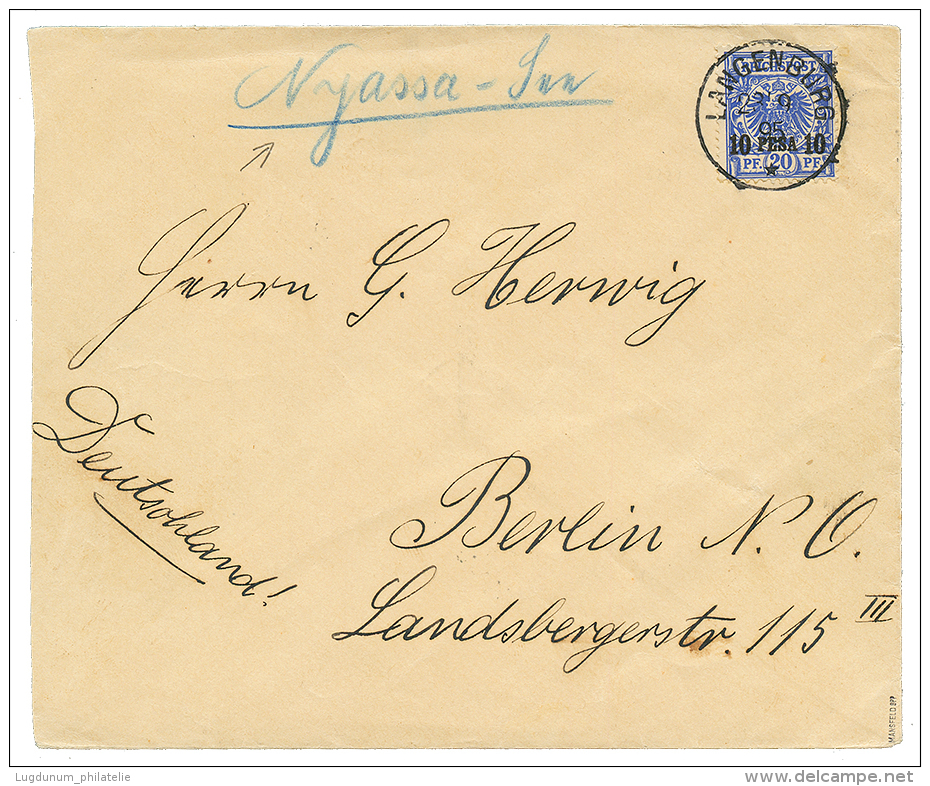 Nyassa-See
REICHSPOST
LANGENBURG
23 9
95
10 PESA 10
PF. 20 PF.
Herrn G. Herwig
Deutschland!
Berlin N. O.
Landsbergerstr. 115 III
MANSFELD BPP
Lugdunum_philatelie
www.delcampe.net